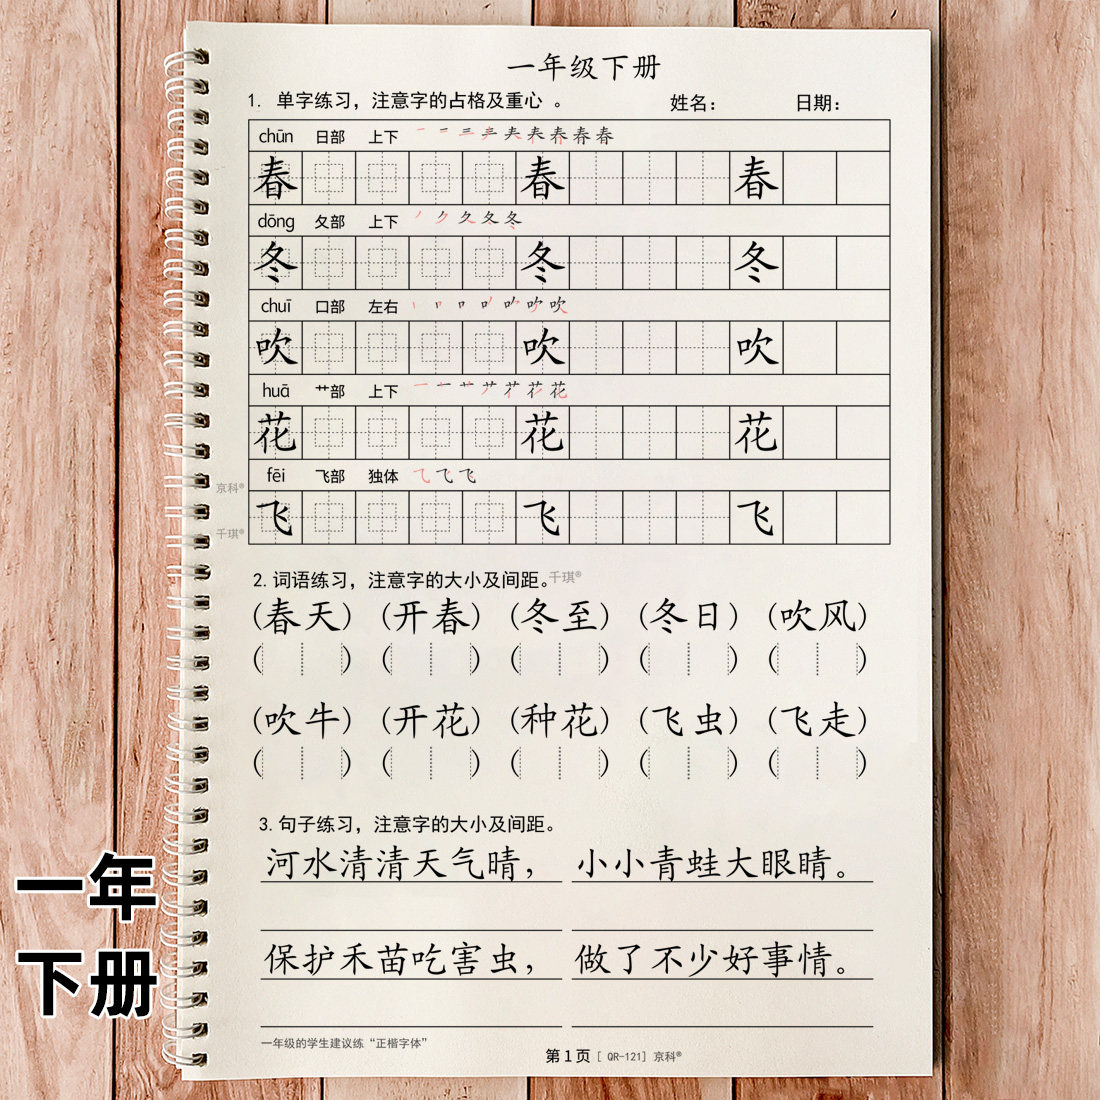 一年级下册
1. 单字练习，注意字的占格及重心 。 姓名： 日期：
chūn 日部 上下
春 春 春
dōng 夂部 上下
冬 冬 冬
chuī 口部 左右
吹 吹 吹
huā 艹部 上下
花 花 花
fēi 飞部 独体
飞 飞 飞
京科®
千琪®
2. 词语练习，注意字的大小及间距。千琪®
(春天) (开春) (冬至) (冬日) (吹风)
( ) ( ) ( ) ( ) ( )
(吹牛) (开花) (种花) (飞虫) (飞走)
( ) ( ) ( ) ( ) ( )
3. 句子练习，注意字的大小及间距。
河水清清天气晴， 小小青蛙大眼睛。
保护禾苗吃害虫， 做了不少好事情。
一年级的学生建议练“正楷字体”
第1页 [ QR-121] 京科®
一年
下册